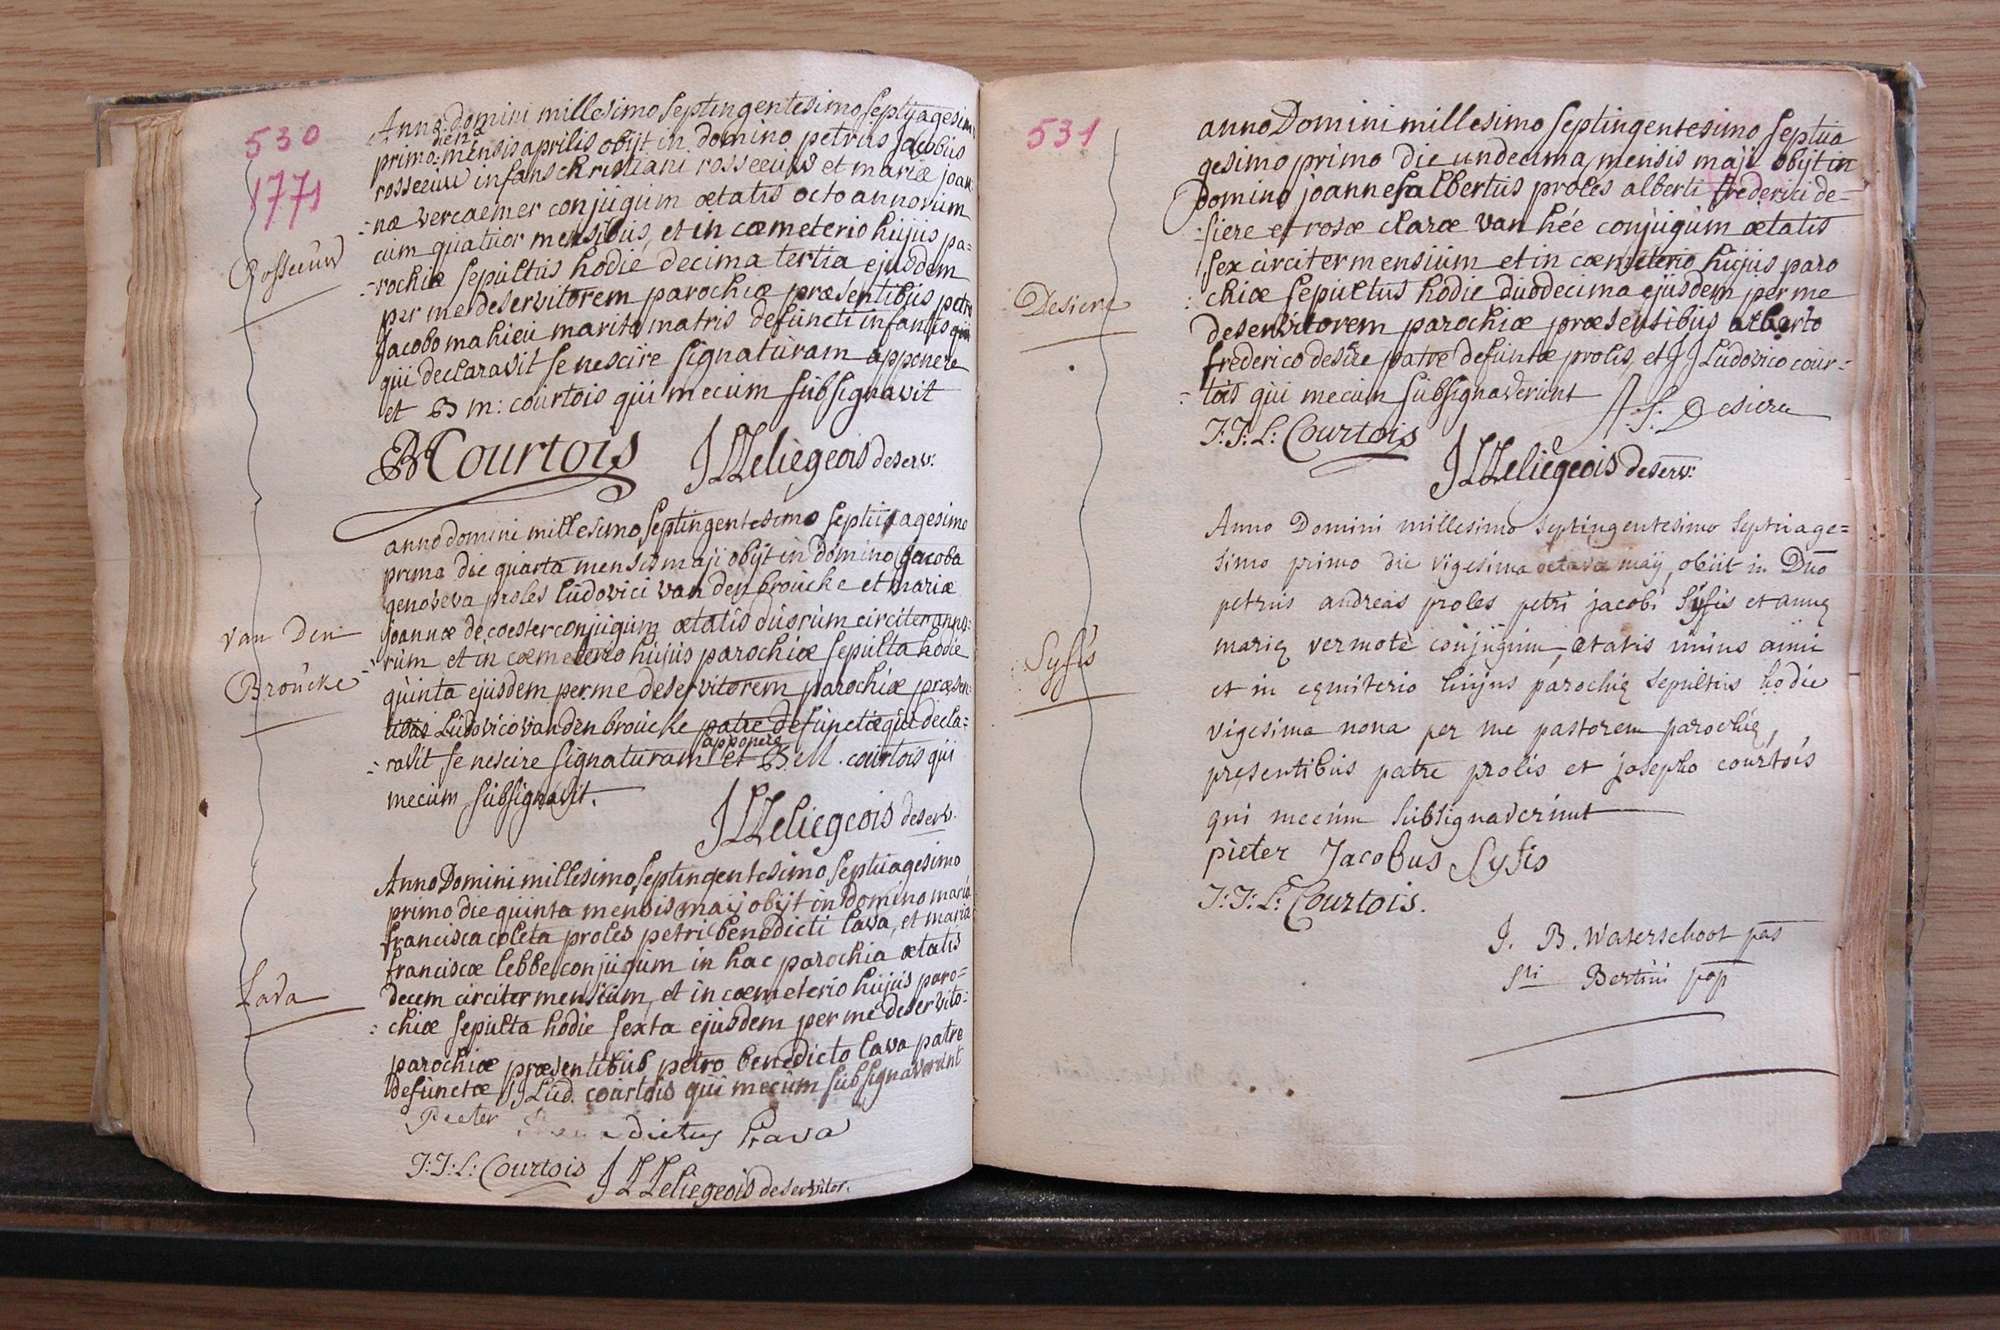 530
1771
Rosseeuw
Anno domini millesimo septingentesimo septuagesimo
primo mensis aprilis obijt in domino petrus jacobus
rosseeuw infans christiani rosseeuw et mariæ joan
=næ vercaemer conjugum ætatis octo annorum
cum quatuor mensibus, et in cæmeterio hujus pa=
=rochiæ sepultus hodie decima tertia ejusdem
per me deservitorem parochiæ præsentibus petro
jacobo mahieu marito matris defuncti infantis
qui declaravit se nescire signaturam apponere
et B m: courtois qui mecum subsignavit
BCourtois JLLeliegeois deserv:
van Den
Broucke
anno domini millesimo septingentesimo septuagesimo
primo die quarta mensis maji obijt in domino jacoba
genoveva proles ludovici van den broucke et mariæ
joannæ de coester conjugum ætatis duorum circiter anno:
=rum et in cæmeterio hujus parochiæ sepulta hodie
quinta ejusdem per me deservitorem parochiæ præsen:
tibus Ludovico van den broucke patre defunctæ qui decla=
=ravit se nescire signaturam apponere et B: M. courtois qui
mecum subsignavit.
JLLeliegeois deserv.
Lava
Anno Domini millesimo septingentesimo septuagesimo
primo die quinta mensis maij obijt in Domino maria
francisca coleta proles petri benedicti lava, et maria
franciscæ lebbe conjugum in hac parochia ætatis
decem circiter mensium, et in cæmeterio hujus paro=
: chiæ sepulta hodie sexta ejusdem per me deservito:
parochiæ præsentibus petro benedicto lava patre
defunctæ J Lud. courtois qui mecum subsignaverunt
Peeter dictus Lava
J:J:L: Courtois JLLeliegeois deservitor.
531
Desiere
anno Domini millesimo septingentesimo septua
gesimo primo die undecima mensis maji obijt in
Domino joannes albertus proles alberti frederici de=
:siere et rosæ claræ van hée conjugum ætatis
sex circiter mensium et in cæmeterio hujus paro
: chiæ sepultus hodie duodecima ejusdem per me
deservitorem parochiæ præsensibus alberto
frederico desiere patre defuntæ prolis, et J J Ludovico cour=
:tois qui mecum subsignaverunt A. f. Desiere
J:J:L: Courtois
JLLeliegeois deserv:
Sysis
Anno Domini millesimo septingentesimo septuage=
simo primo die vigesima octava maij, obiit in Dno
petrus andreas proles petri jacobi Sysis et annę
marię vermote conjugum, ætatis unius anni
et in cęmiterio hujus parochię sepultus hodie
vigesima nona per me pastorem parochię,
pręsentibus patre prolis et josepho courtois
qui mecum subsignaverunt
pieter Jacobus Sysis
J:J:L: Courtois.
J. B. Waterschoot pas
Sti Bertini pop